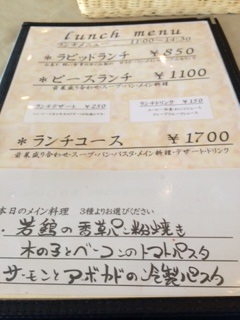 lunch menu
ランチメニュー 11:00～14:30
＊ラピッドランチ ￥850
＊ピースランチ ￥1100
前菜盛り合わせ・スープ・パン・メイン料理
ランチデザート ￥250
ランチドリンク ￥150
＊ランチコース ￥1700
前菜盛り合わせ・スープ・パン・パスタ・メイン料理・デザートドリンク
本日のメイン料理 3種よりお選びください
・若鶏の香草パン粉焼き
木の子とベーコンのトマトパスタ
サーモンとアボカドの冷製パスタ